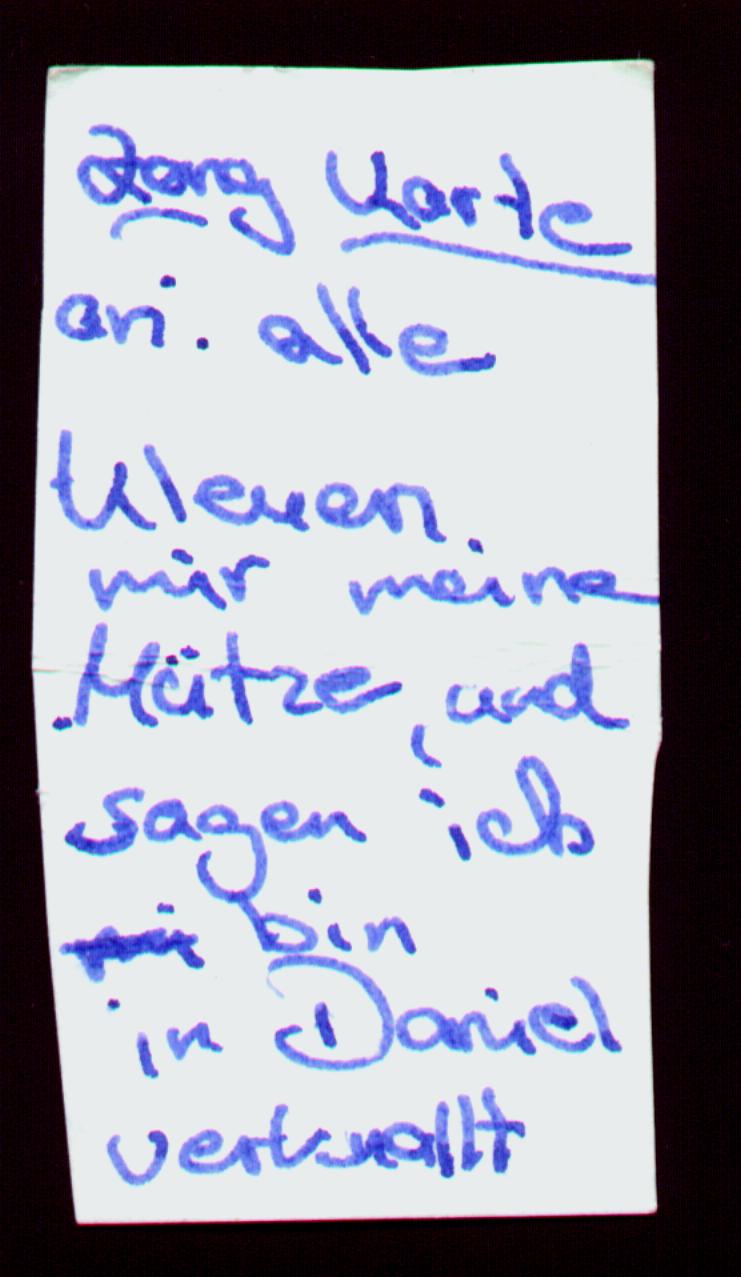 Zong Karte
an. alle
klenen
mir meine
Mütze, und
sagen ich
bin
in Daniel
verknallt